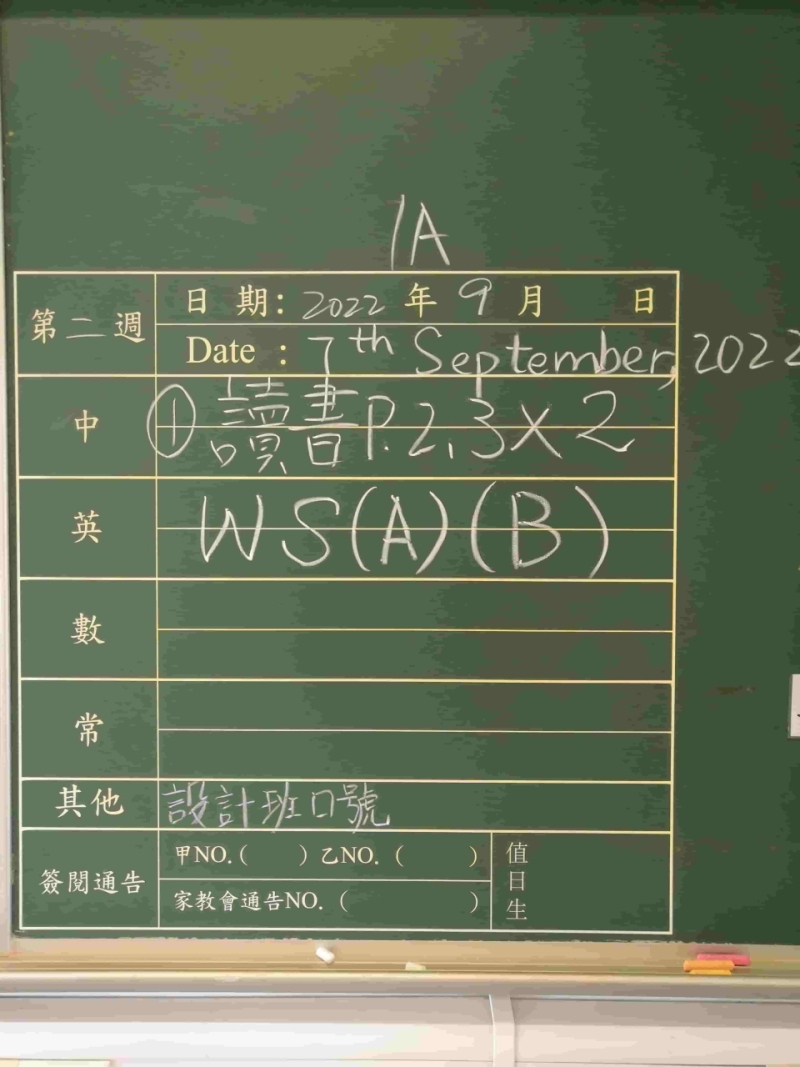 1A
第二週
日期: 2022 年 9 月 日
Date : 7th September, 2022
中 ① 讀書P.2,3×2
英 WS(A)(B)
數
常
其他 設計班口號
簽閱通告 甲NO.( ) 乙NO. ( )
家教會通告NO. ( )
值日生